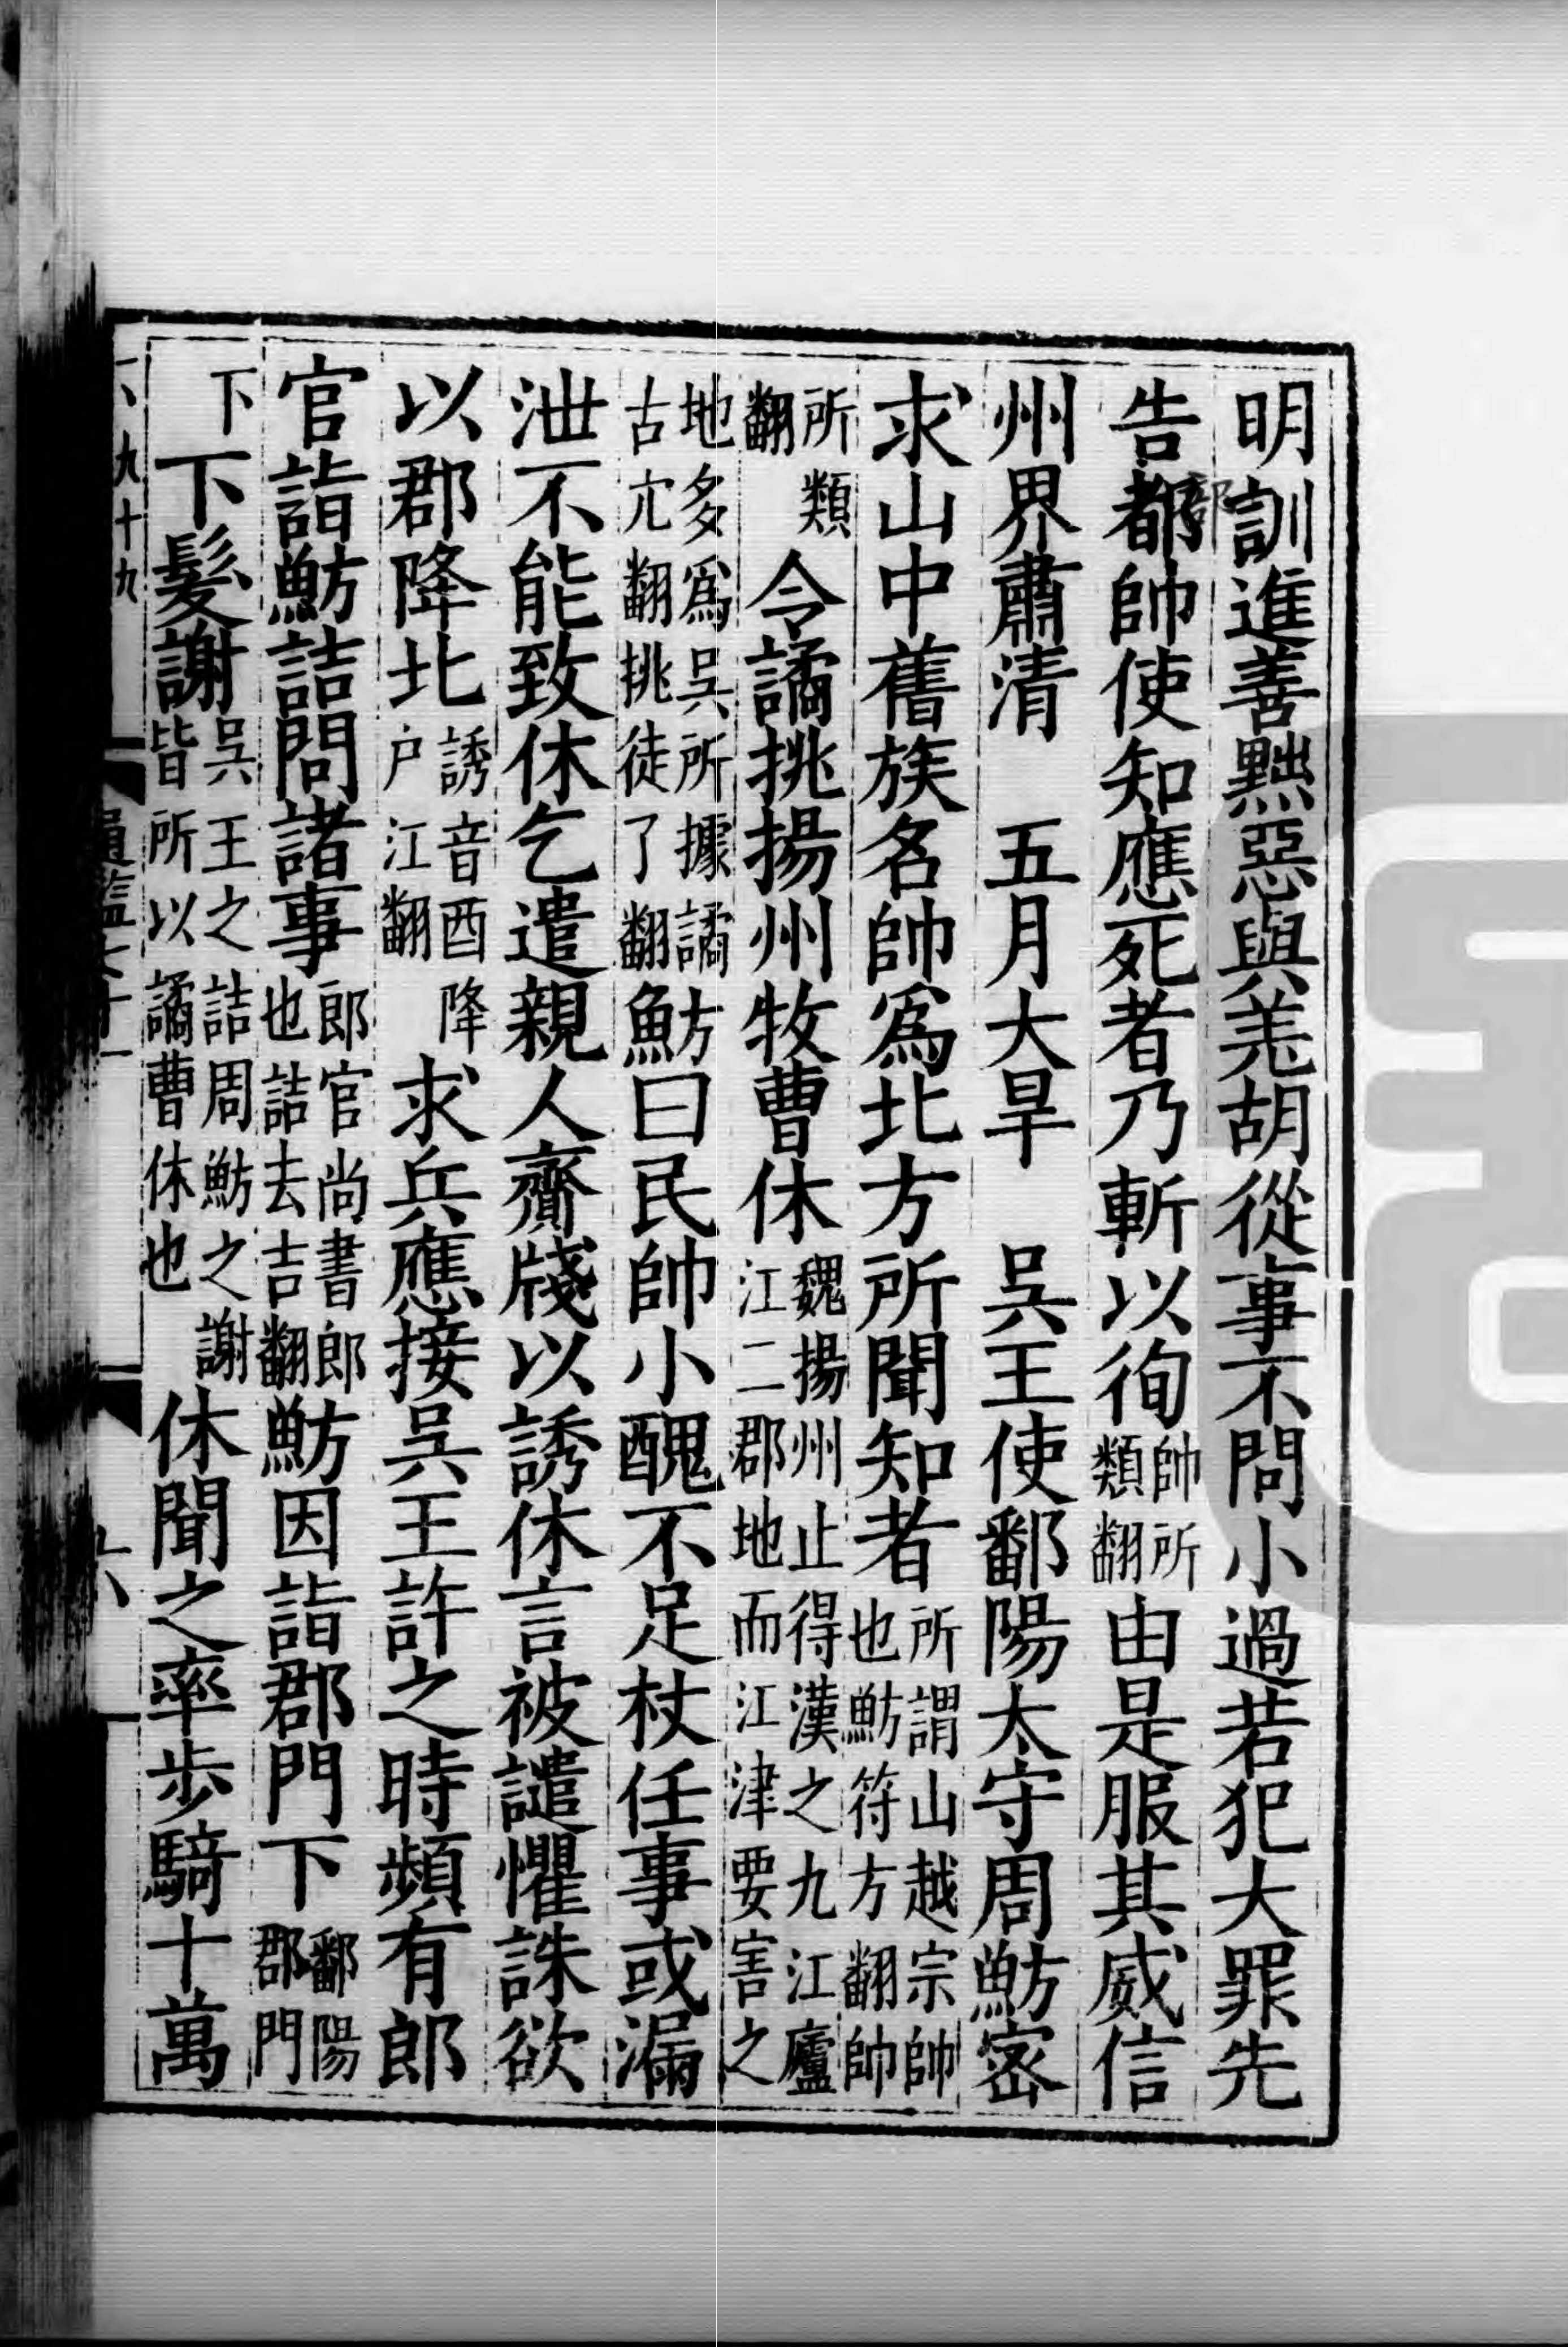 明訓進善黜惡與羌胡從事不問小過若犯大罪先
告都帥使知應死者乃斬以徇帥所類翻由是服其威信
部
州界肅清　五月大旱　吳王使鄱陽太守周魴密
求山中舊族名帥為北方所聞知者所謂山越宗帥也魴符方翻帥
所類翻令譎挑揚州牧曹休魏揚州止得漢之九江廬江二郡地而江津要害之
地多為吳所據譎古宂翻挑徒了翻魴曰民帥小醜不足杖任事或漏
泄不能致休乞遣親人齎牋以誘休言被譴懼誅欲
以郡降北誘音酉降户江翻求兵應接吳王許之時頻有郎
官詣魴詰問諸事郎官尚書郎也詰去吉翻魴因詣郡門下鄱陽郡門
下下髮謝吳王之詰周魴之謝皆所以譎曹休也休聞之率步騎十萬
九十九